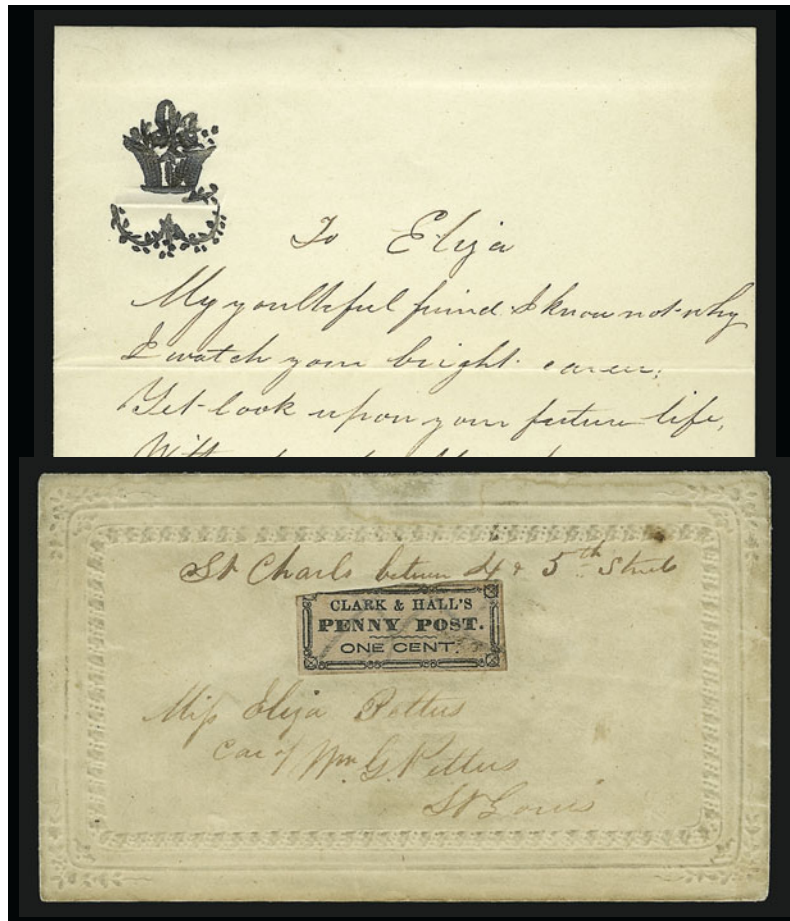 To Eliza
My youthful friend I know not why
I watch your bright career,
Yet look upon your future life,
With
St Charls between 4 & 5th Streets
CLARK & HALL'S
PENNY POST.
ONE CENT.
Miss Eliza Pettus
Car of Wm. G. Pettus
St Louis